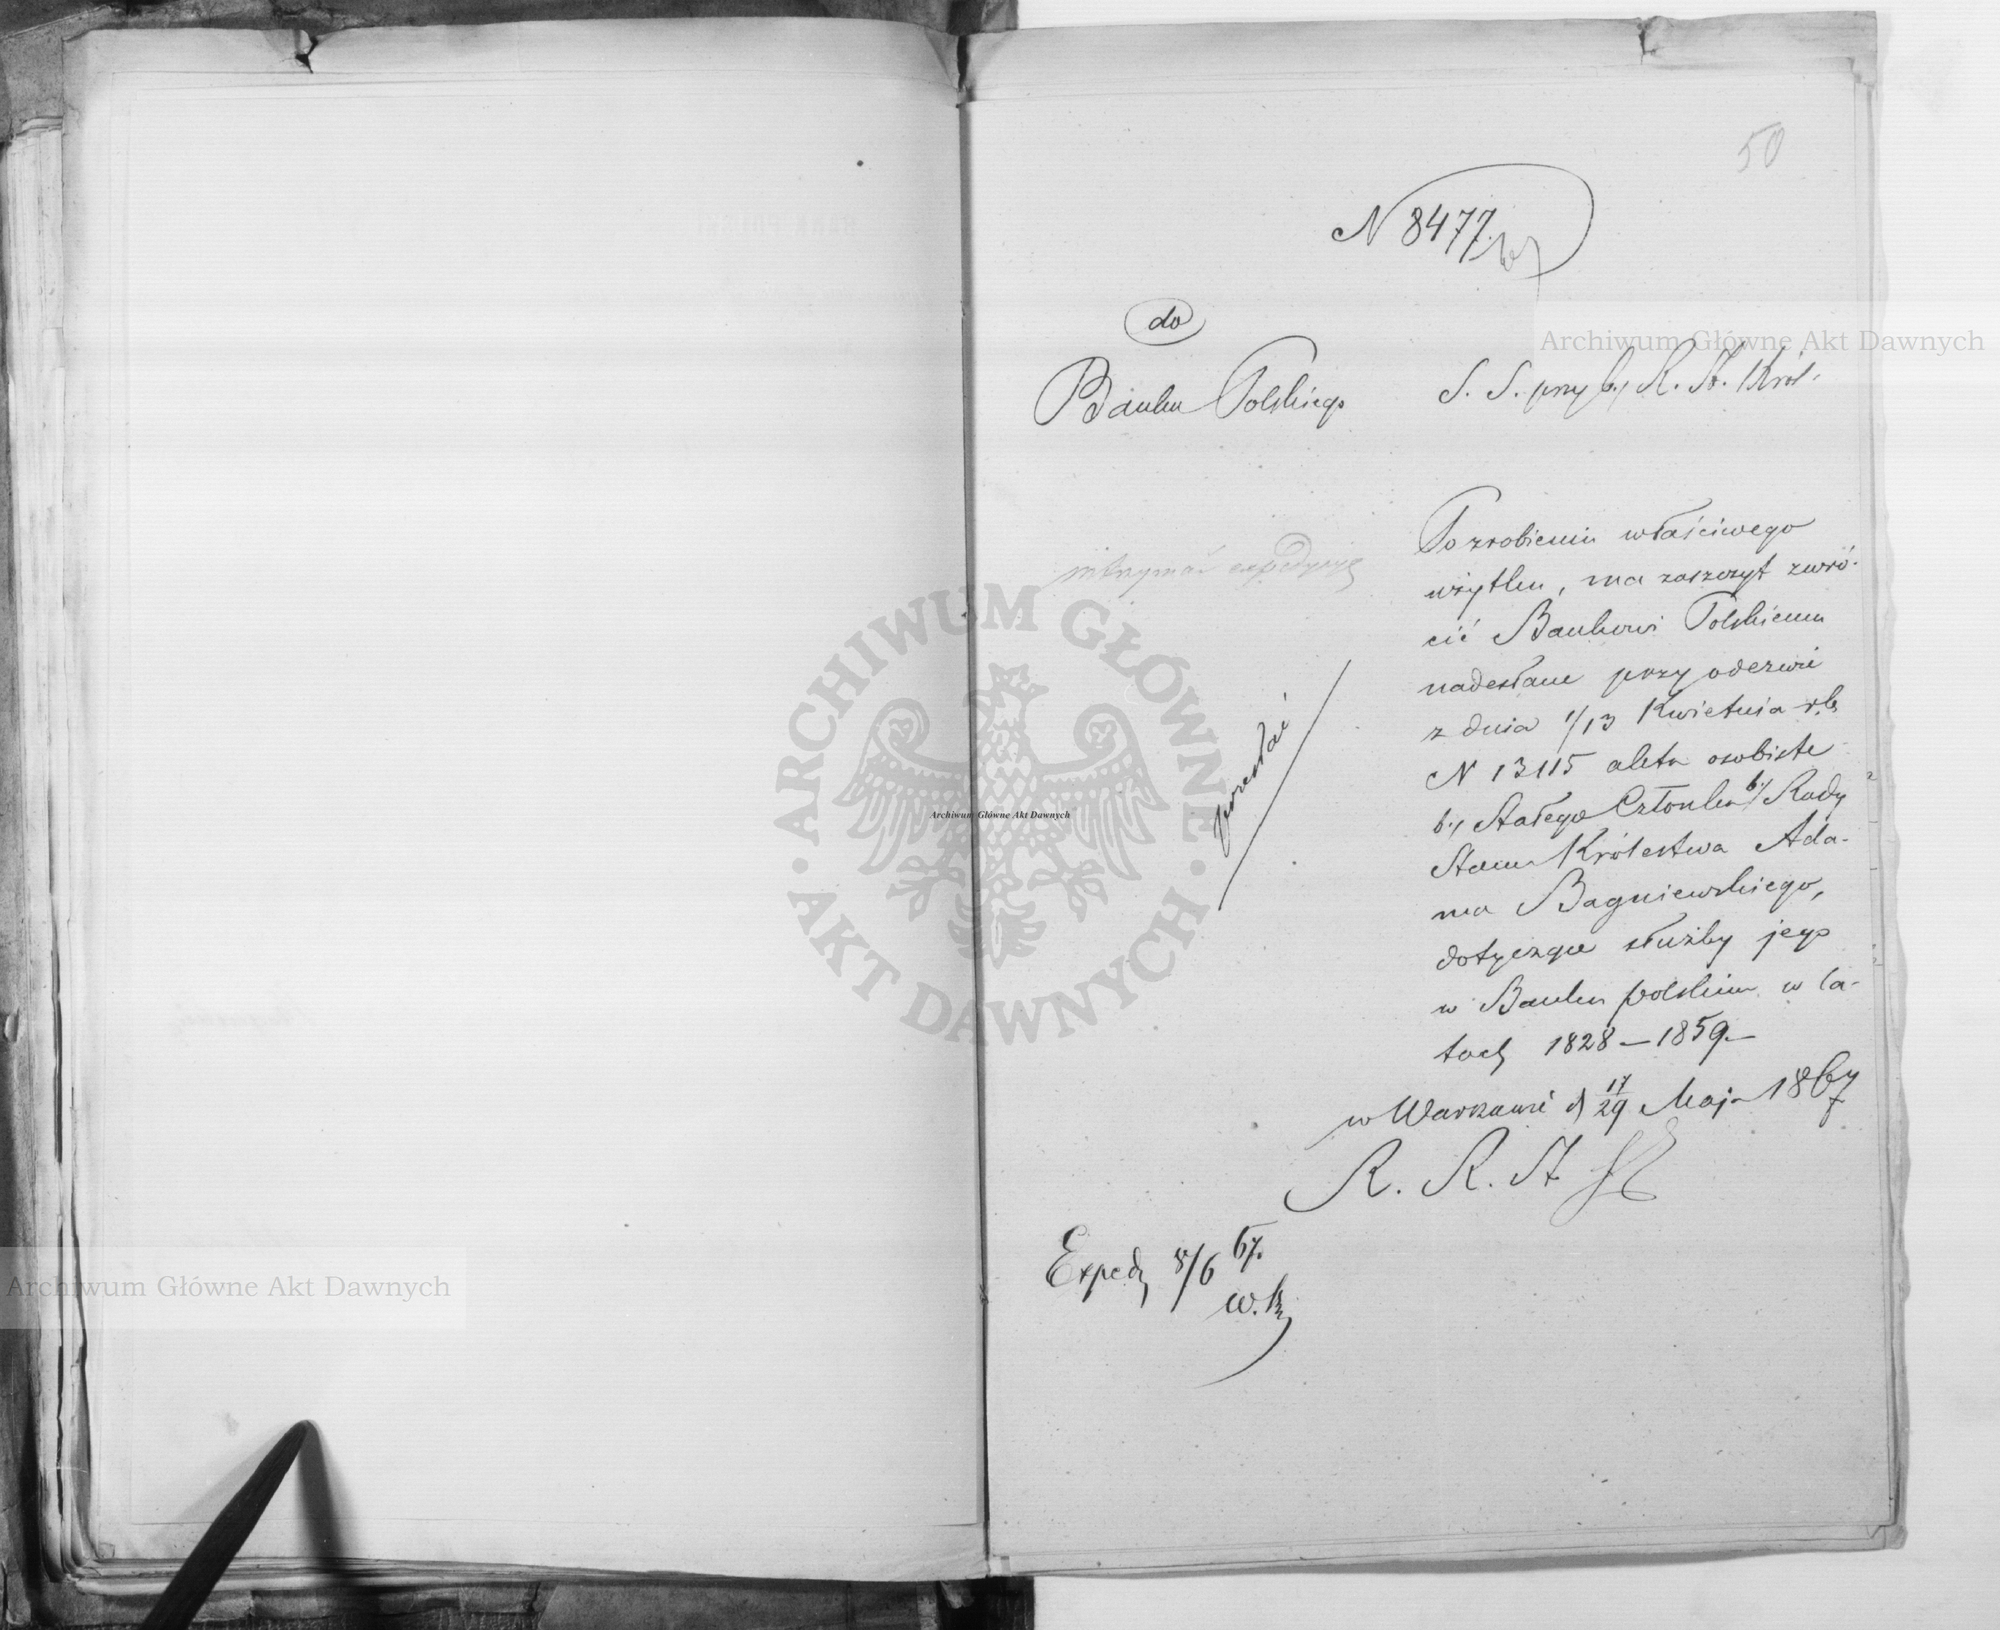 50
N 8477.
do
Banku Polskiego
S. S. przy b. R. St. Król.
wtrzymać expedycyę
Po zrobieniu właściwego
użytku, ma zaszczyt zwró-
cić Bankowi Polskiemu
nadesłane przy odezwie
z dnia 1/13 Kwietnia r.b.
N 13115 akta osobiste
b. Stałego Członka b. Rady
Stanu Królestwa Ada-
ma Bagniewskiego,
dotyczące służby jego
w Banku polskim w la-
tach 1828 – 1859. –
przesłać
w Warszawie d 17/29 Maja 1867
R. R. St
Exped. 8/6 67.
Archiwum Główne Akt Dawnych
Archiwum Główne Akt Dawnych
Archiwum Główne Akt Dawnych
ARCHIWUM GŁÓWNE · AKT DAWNYCH ·